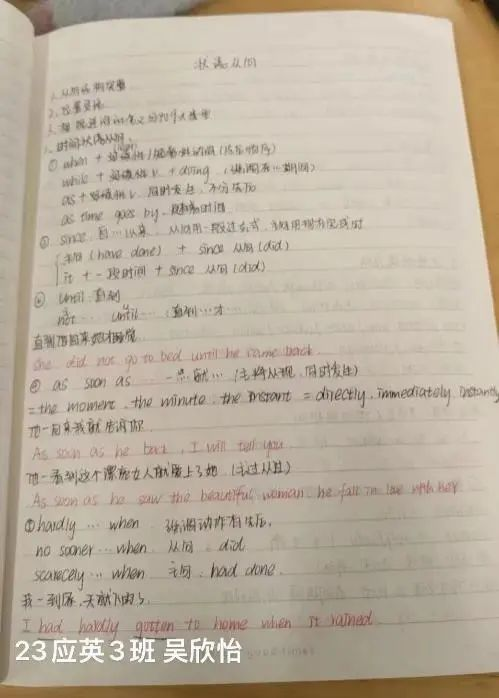 状语从句
1. 从句
2. 位置灵活
3. 按照
1. 时间状语从句
① when + 延续性/短暂性动词
while + 延续性 v. + doing (强调在…期间)
as + 延续性 v. 同时发生,不分先后
as time goes by. 随着时间
② since. 自…以来, 从句用一般过去式, 主句用现在完成时
主句 (have done) + since 从句 (did)
it + 一段时间 + since 从句 (did)
until 直到
not … until … (直到…才
直到他回来她才睡觉
She did not go to bed until he came back
④ as soon as … 一…就… (主将从现, 同时发生)
= the moment, the minute, the instant = directly, immediately, instantly
他一回来我就告诉你
As soon as he back, I will tell you.
他一看到这个漂亮女人就爱上了她 (主过从过)
As soon as he saw the beautiful woman he fall in love with her
① hardly … when 强调动作有先后,
no sooner … when. 从句: did
scarecely … when 主句: had done.
我一到家,天就下雨了.
I had hardly gotten to home when it rained.
23应英3班 吴欣怡